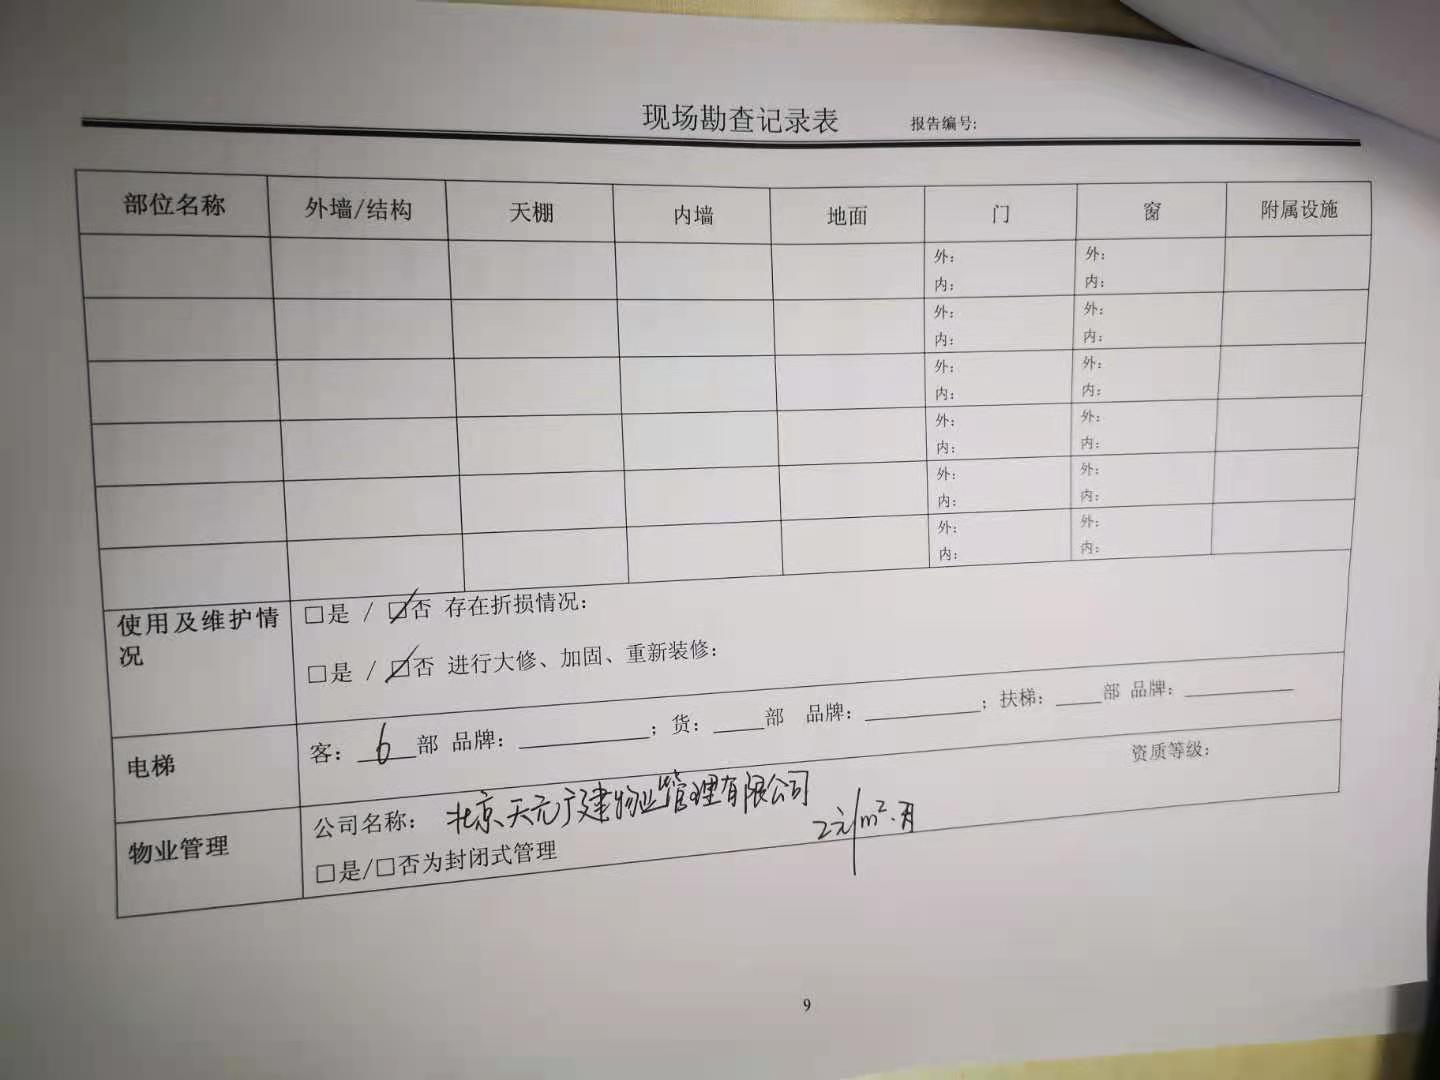 现场勘查记录表 报告编号:
部位名称 外墙/结构 天棚 内墙 地面 门 窗 附属设施
外: 外:
内: 内:
外: 外:
内: 内:
外: 外:
内: 内:
外: 外:
内: 内:
外: 外:
内: 内:
外: 外:
内: 内:
使用及维护情况 □是 / ☑否 存在折损情况:
□是 / ☑否 进行大修、加固、重新装修:
电梯 客: 6 部 品牌:________; 货:____部 品牌:________; 扶梯:____部 品牌:________
物业管理 公司名称: 北京天元广建物业管理有限公司 资质等级:
2元/m²·月
□是/□否为封闭式管理
9